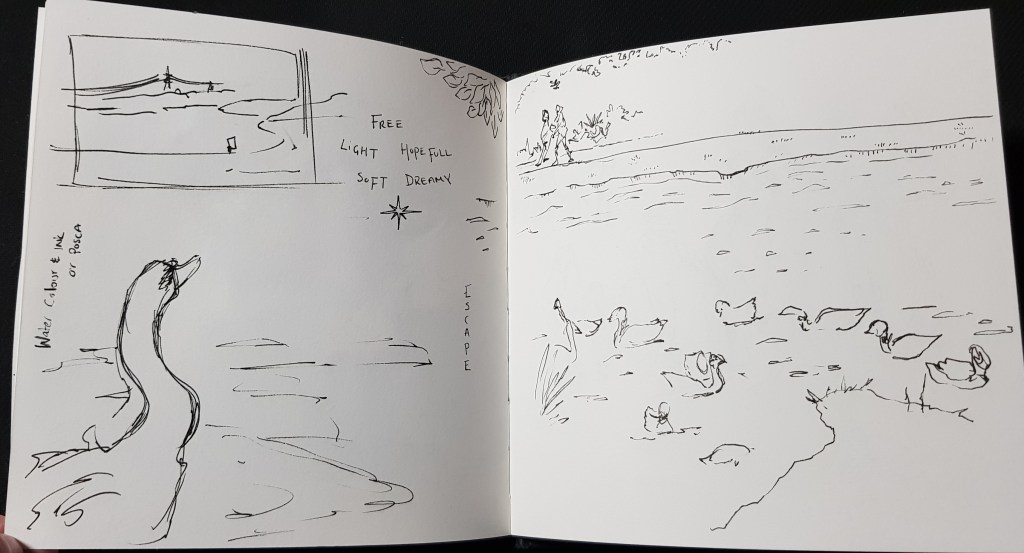 FREE
LIGHT HOPEFULL
SOFT DREAMY
WATER COLOUR & INK
OR POSCA
ESCAPE